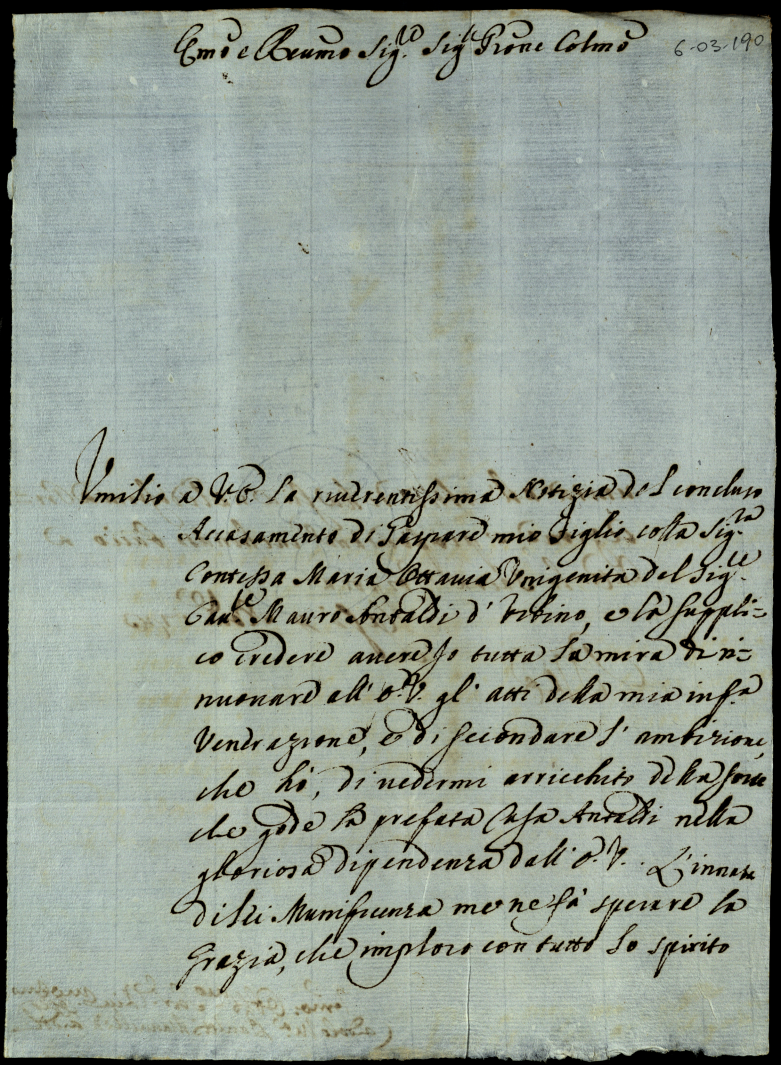 Emõ e Reumõ Sig.re Sig.re Prone Colmõ
6-03-190
Vmilio a V.E. la riuerentissima Notizia del concluso
Accasamento di Gaspare mio Figlio colla Sig.ra
Contessa Maria Ottauia Vnigenita del Sig.re
Cau.re Mauro Antaldi d'Vrbino, e la suppli=
co credere auere Jo tutta la mira di ri=
nuouare all'E.V. gl'atti della mia inf.a
Venerazione, e di secondare l'ambizione,
che hò, di uedermi arricchito della sorte
che gode la prefata Casa Antaldi nella
gloriosa dipendenza dall'E.V.. L'innata
di lei Munificenza me ne fà sperare la
Grazia, che imploro con tutto lo spirito